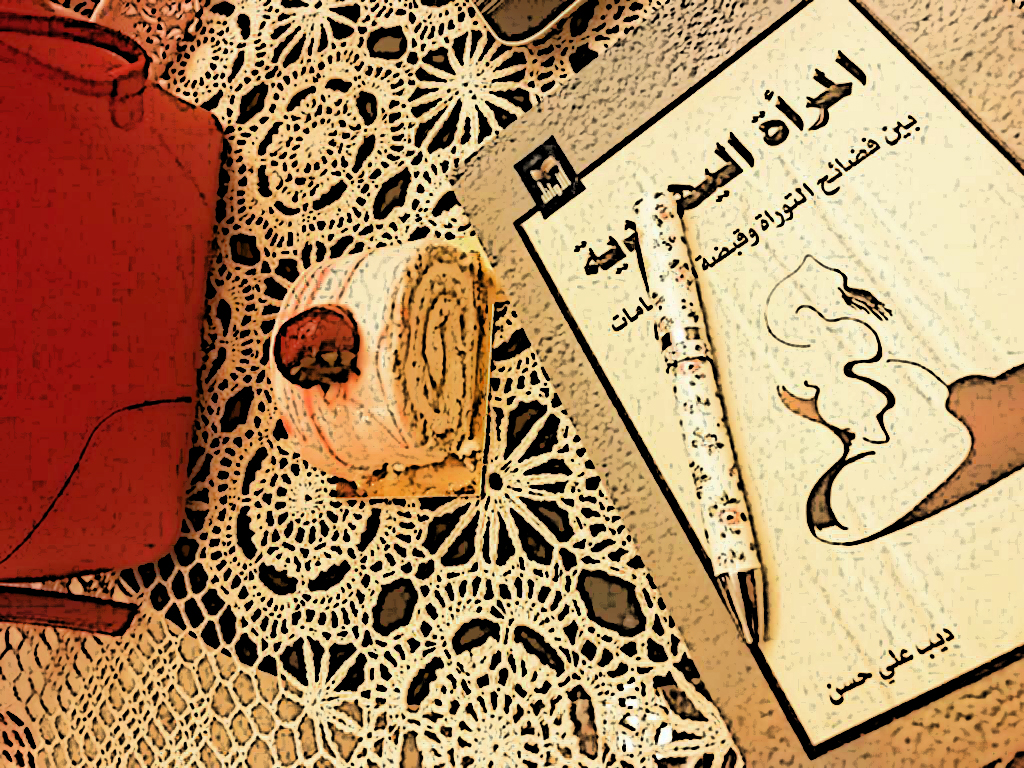 المرأة اليهودية
بين فضائح التوراة وقبضة
ديب علي حسن